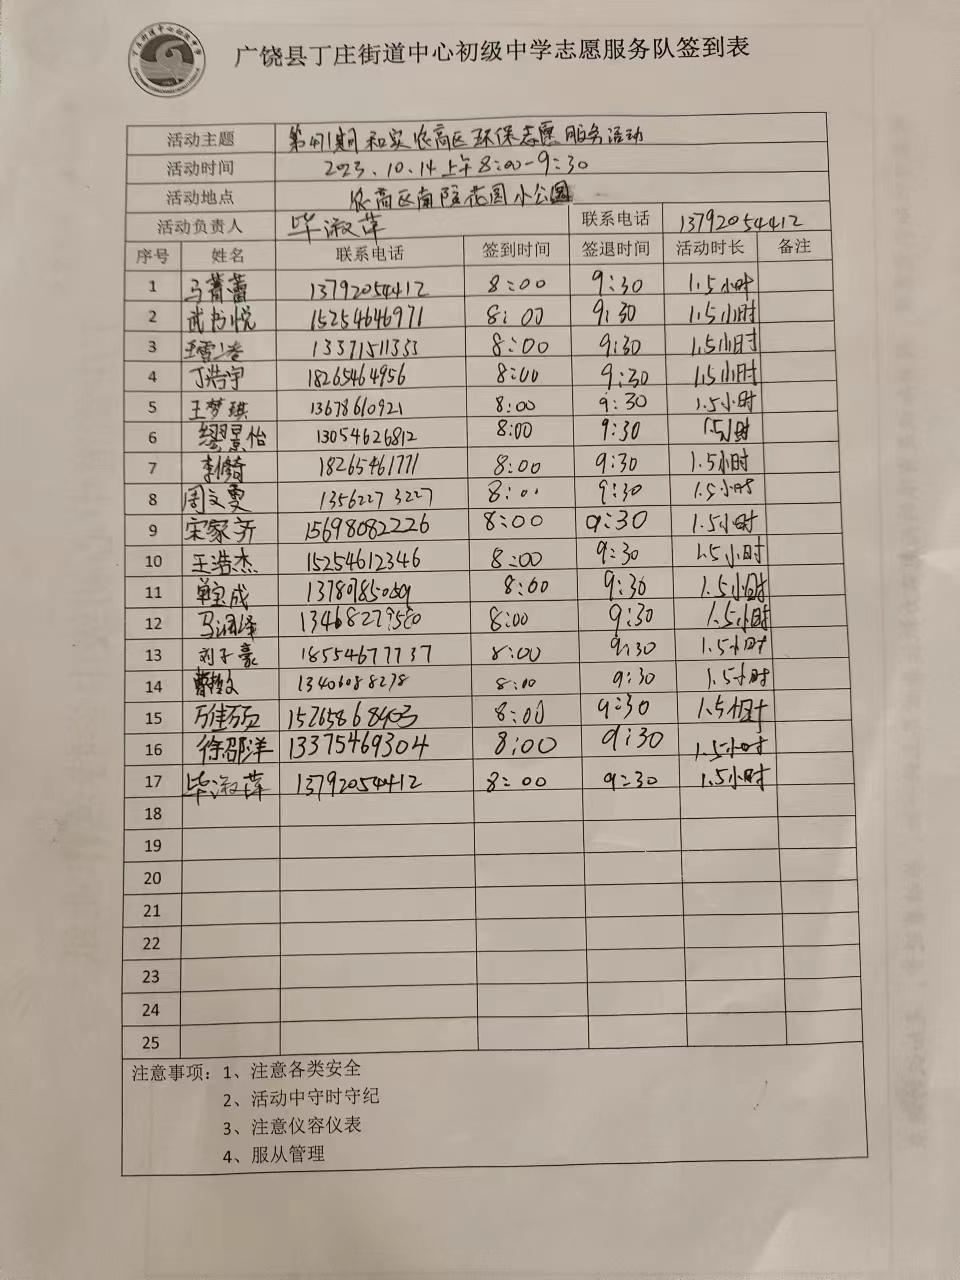 广饶县丁庄街道中心初级中学志愿服务队签到表
活动主题 第471期和实农高区环保志愿服务活动
活动时间 2023.10.14上午8:00-9:30
活动地点 农高区南陀花园小公园
活动负责人 毕淑萍 联系电话 13792054412
序号 姓名 联系电话 签到时间 签退时间 活动时长 备注
1 马菁蕾 13792054412 8:00 9:30 1.5小时
2 武书悦 15254646971 8:00 9:30 1.5小时
3 13371511333 8:00 9:30 1.5小时
4 丁浩宇 18265464956 8:00 9:30 1.5小时
5 王梦琪 13678610921 8:00 9:30 1.5小时
6 缪景怡 13054626812 8:00 9:30 1.5小时
7 李修琦 18265461771 8:00 9:30 1.5小时
8 周文雯 13562273227 8:00 9:30 1.5小时
9 宋家齐 15698082226 8:00 9:30 1.5小时
10 王浩杰 15254612346 8:00 9:30 1.5小时
11 8:00 9:30 1.5小时
12 马润泽 13468279580 8:00 9:30 1.5小时
13 刘子豪 18554677737 8:00 9:30 1.5小时
14 13406088278 8:00 9:30 1.5小时
15 15765868403 8:00 9:30 1.5小时
16 徐邵洋 13375469304 8:00 9:30 1.5小时
17 毕淑萍 13792054412 8:00 9:30 1.5小时
18
19
20
21
22
23
24
25
注意事项：1、注意各类安全
2、活动中守时守纪
3、注意仪容仪表
4、服从管理